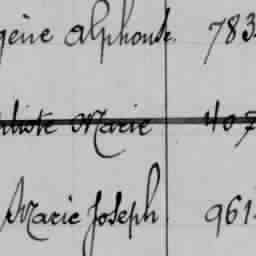 gène Alphonse. 783
ptiste Marie 407
Marie Joseph 961